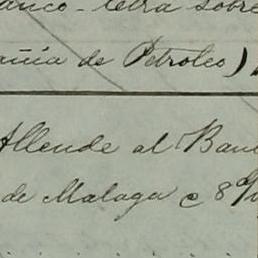 anco - letra sobre
añia de Petroleo)
Allende al Ban
de Malaga c 8 d/v